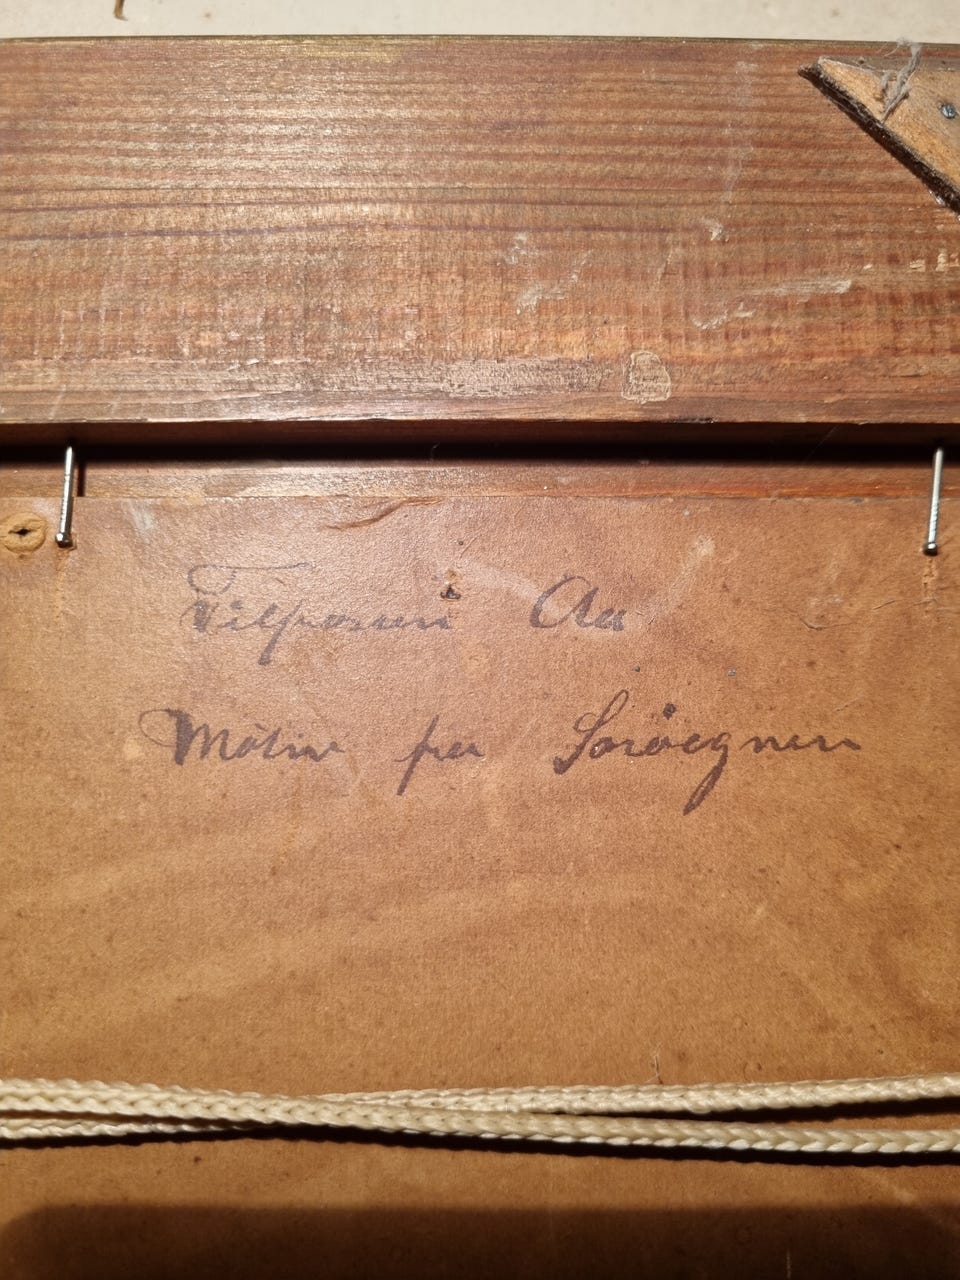 Tilfrosen Aa
Motiv fra Sorøegnen